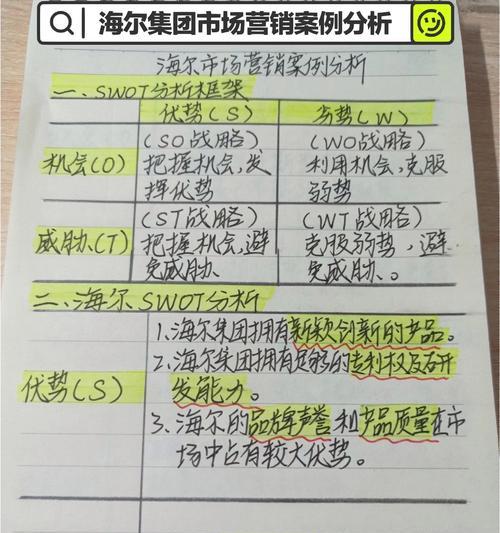 海尔集团市场营销案例分析
海尔市场营销案例分析
一、SWOT分析框架
优势(S) 劣势(W)
机会(O)
(SO战略)
把握机会,发
挥优势
(WO战略)
利用机会,克服
弱势
威胁(T)
(ST战略)
把握机会,避
免威胁
(WT战略)
克服弱势,避
免威胁。
二、海尔SWOT分析
优势(S)
1.海尔集团拥有新颖创新的产品。
2.海尔集团拥有足够的专利权及研
发能力。
3.海尔的品牌声誉和产品质量在市
场中占有较大优势。